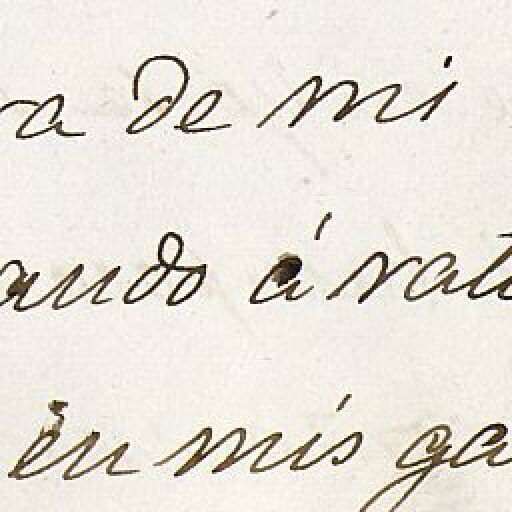 ra de mi
ando á rat
en mis ga